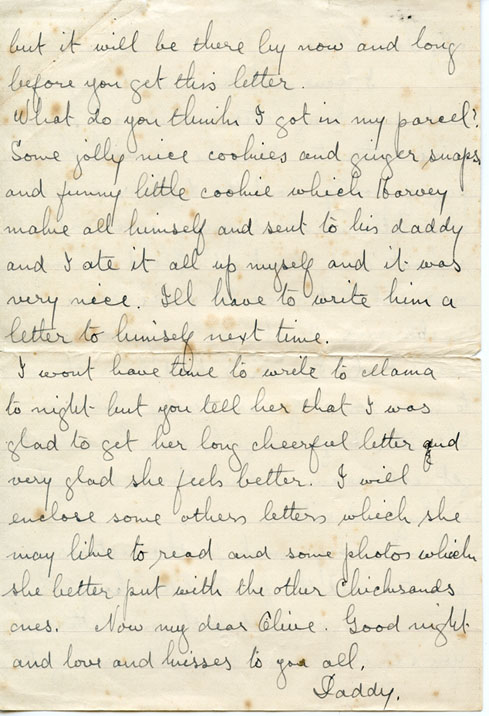 but it will be there by now and long
before you get this letter.
What do you think I got in my parcel?
Some jolly nice cookies and ginger snaps
and funny little cookie which Harvey
make all himself and sent to his daddy
and I ate it all up myself and it was
very nice. I'll have to write him a
letter to himself next time.
I wont have time to write to Mama
to night but you tell her that I was
glad to get her long cheerful letter and
very glad she feels better. I will
enclose some others letters which she
may like to read and some photos which
she better put with the other Chicksands
ones. Now my dear Olive. Good night
and love and kisses to you all,
Daddy.